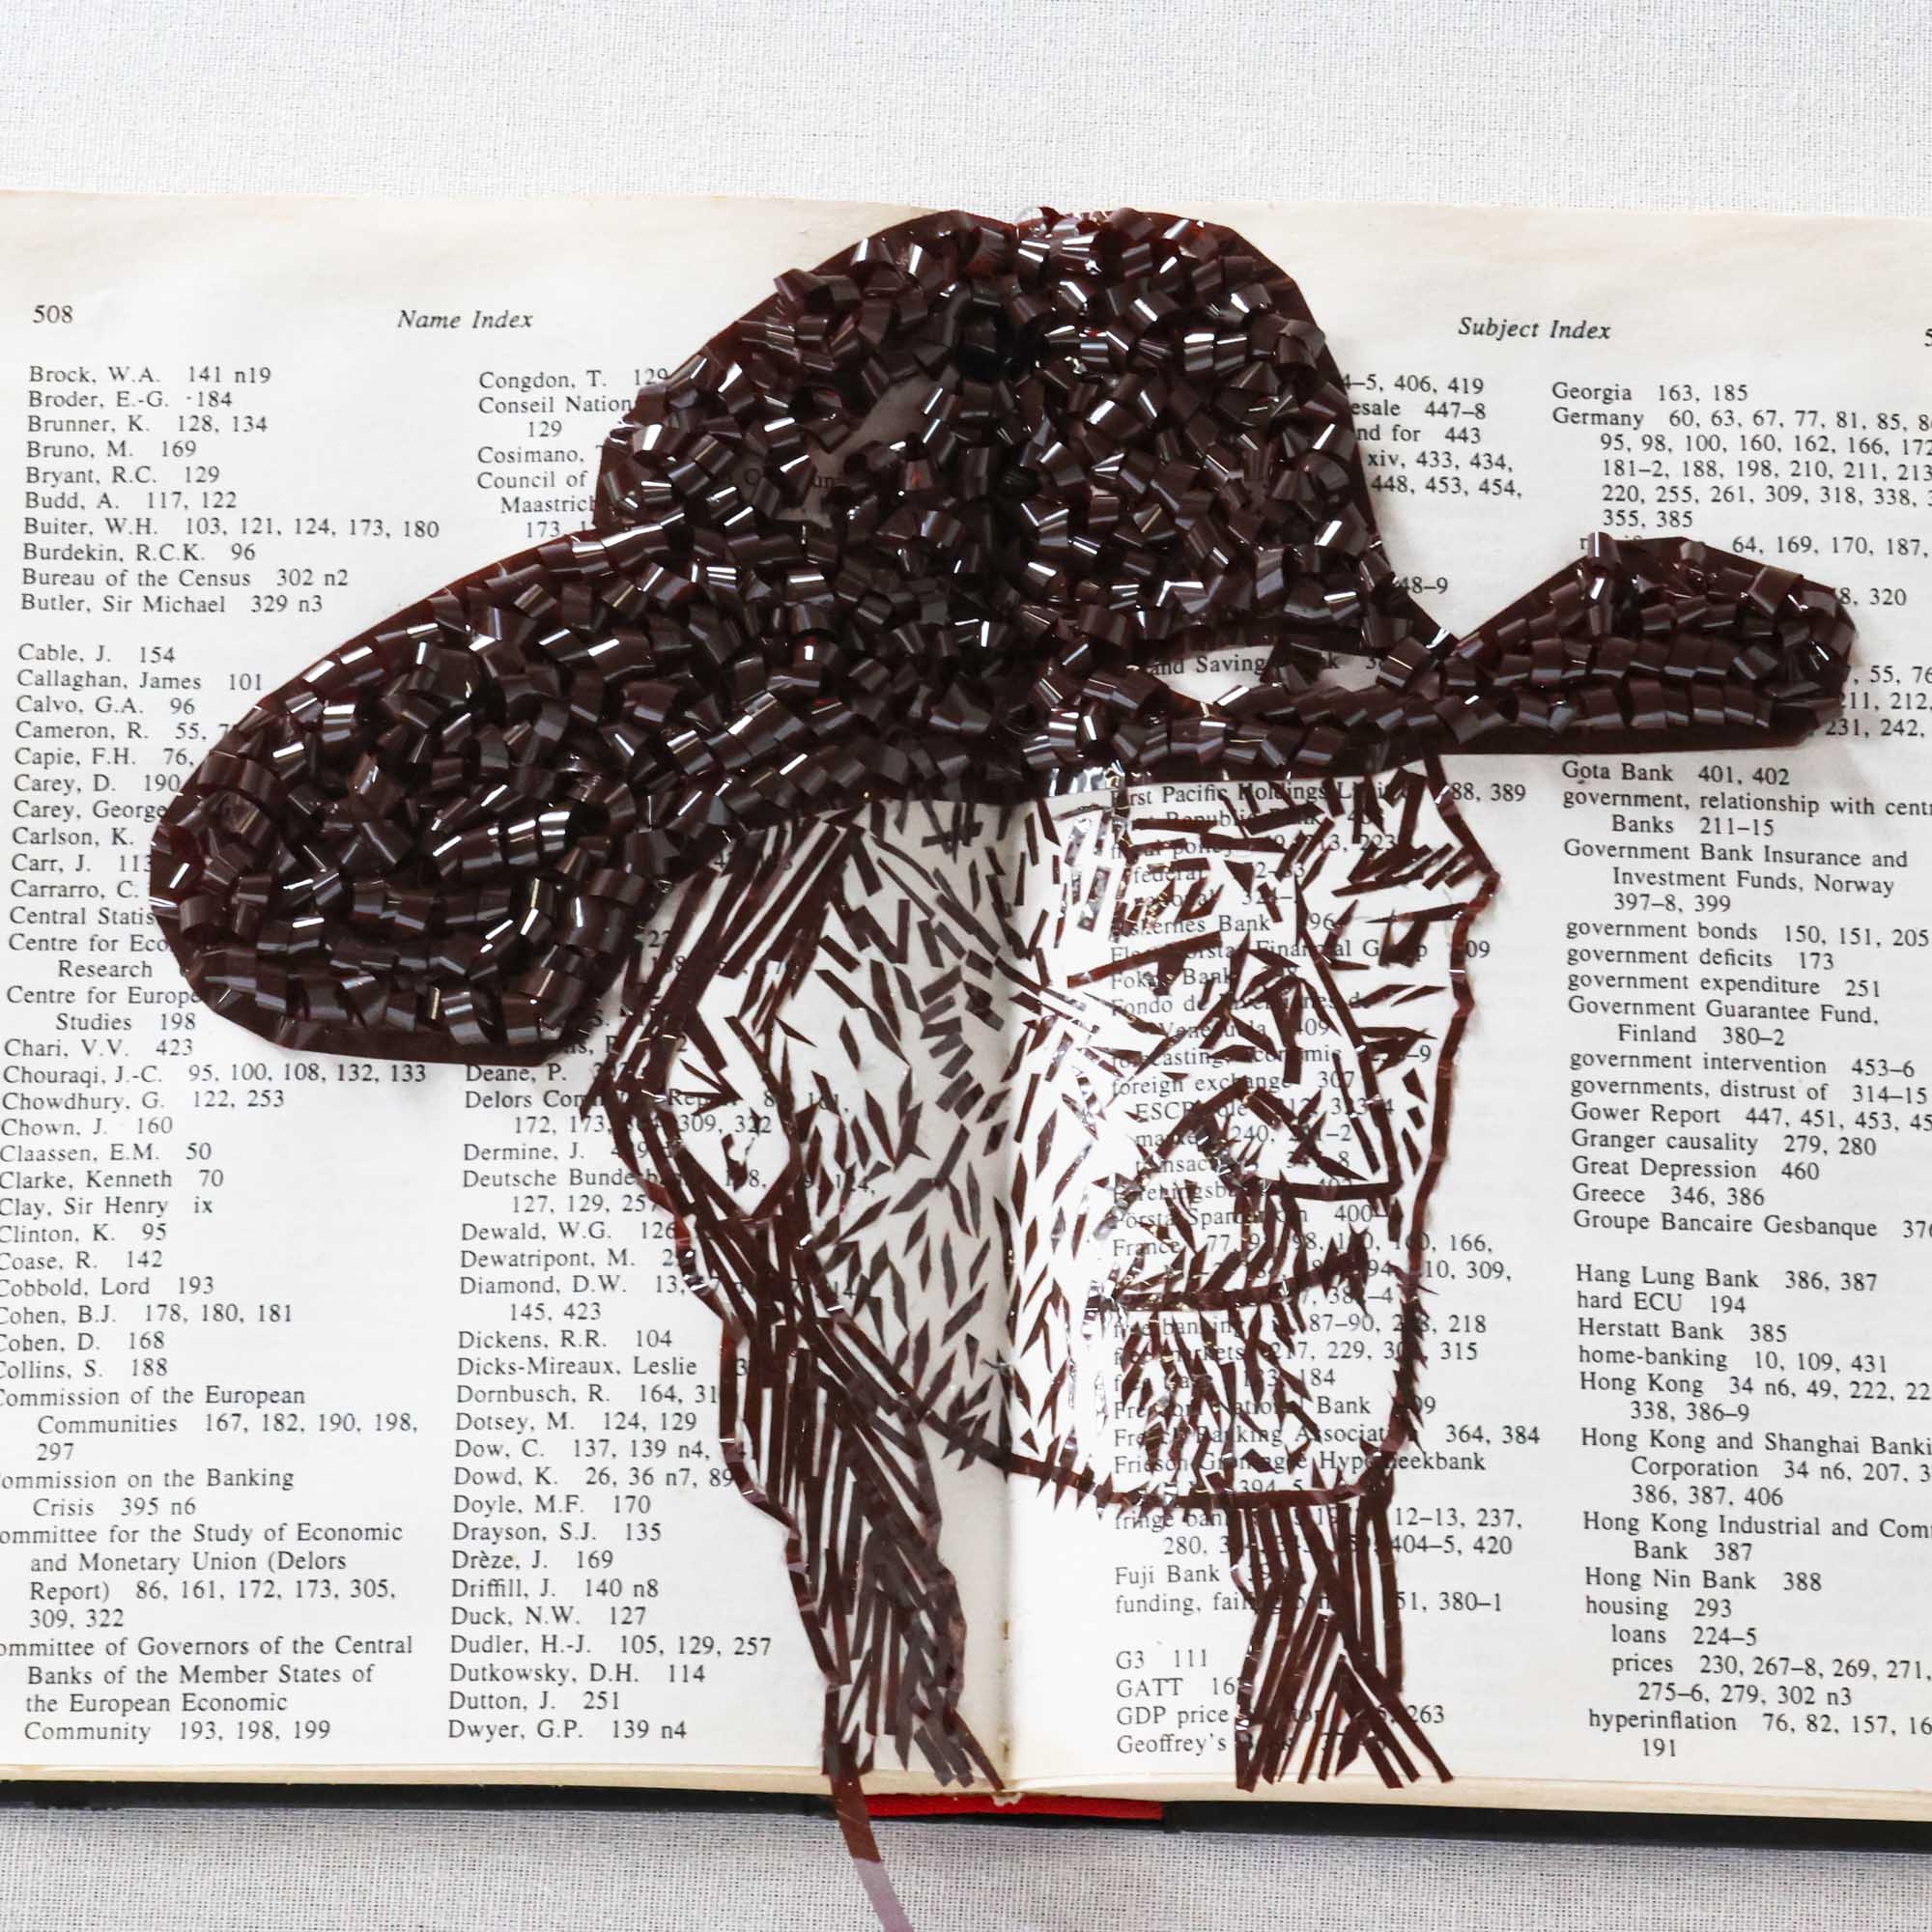 508
Name Index
Brock, W.A. 141 n19
Broder, E.-G. 184
Brunner, K. 128, 134
Bruno, M. 169
Bryant, R.C. 129
Budd, A. 117, 122
Buiter, W.H. 103, 121, 124, 173, 180
Burdekin, R.C.K. 96
Bureau of the Census 302 n2
Butler, Sir Michael 329 n3
Cable, J. 154
Callaghan, James 101
Calvo, G.A. 96
Cameron, R. 55,
Capie, F.H. 76,
Carey, D. 190
Carey, George
Carlson, K.
Carr, J. 113
Carrarro, C.
Central Statis
Centre for Eco
Research
Centre for Europe
Studies 198
Chari, V.V. 423
Chouraqi, J.-C. 95, 100, 108, 132, 133
Chowdhury, G. 122, 253
Chown, J. 160
Claassen, E.M. 50
Clarke, Kenneth 70
Clay, Sir Henry ix
Clinton, K. 95
Coase, R. 142
Cobbold, Lord 193
Cohen, B.J. 178, 180, 181
Cohen, D. 168
Collins, S. 188
Commission of the European
Communities 167, 182, 190, 198,
297
ommission on the Banking
Crisis 395 n6
ommittee for the Study of Economic
and Monetary Union (Delors
Report) 86, 161, 172, 173, 305,
309, 322
ommittee of Governors of the Central
Banks of the Member States of
the European Economic
Community 193, 198, 199
Congdon, T. 129
Conseil Nation
129
Cosimano,
Council of
Maastrich
173,
Deane, P.
Delors Com
172, 173, 309, 322
Dermine, J.
Deutsche Bundesb
127, 129, 257
Dewald, W.G. 126
Dewatripont, M.
Diamond, D.W. 13,
145, 423
Dickens, R.R. 104
Dicks-Mireaux, Leslie
Dornbusch, R. 164, 31
Dotsey, M. 124, 129
Dow, C. 137, 139 n4,
Dowd, K. 26, 36 n7, 89
Doyle, M.F. 170
Drayson, S.J. 135
Drèze, J. 169
Driffill, J. 140 n8
Duck, N.W. 127
Dudler, H.-J. 105, 129, 257
Dutkowsky, D.H. 114
Dutton, J. 251
Dwyer, G.P. 139 n4
Subject Index
4–5, 406, 419
esale 447–8
nd for 443
xiv, 433, 434,
448, 453, 454,
48–9
and Saving
First Pacific Holdings 88, 389
Bank 96
Financial G 09
Fokus Bank
Fondo de
foreign exchange 307
France 77, 166,
10, 309,
free banking 87–90, 218
217, 229, 315
184
Bank
French Banking Associat 364, 384
Hypotheekbank
394–5
fringe ban 12–13, 237,
280, 404–5, 420
Fuji Bank
funding, fail 51, 380–1
G3 111
GATT 16
GDP price 263
Geoffrey's
Georgia 163, 185
Germany 60, 63, 67, 77, 81, 85, 8
95, 98, 100, 160, 162, 166, 172
181–2, 188, 198, 210, 211, 213
220, 255, 261, 309, 318, 338,
355, 385
64, 169, 170, 187,
8, 320
55, 76
211, 212,
231, 242,
Gota Bank 401, 402
government, relationship with cent
Banks 211–15
Government Bank Insurance and
Investment Funds, Norway
397–8, 399
government bonds 150, 151, 205
government deficits 173
government expenditure 251
Government Guarantee Fund,
Finland 380–2
government intervention 453–6
governments, distrust of 314–15
Gower Report 447, 451, 453, 45
Granger causality 279, 280
Great Depression 460
Greece 346, 386
Groupe Bancaire Gesbanque 376
Hang Lung Bank 386, 387
hard ECU 194
Herstatt Bank 385
home-banking 10, 109, 431
Hong Kong 34 n6, 49, 222, 22
338, 386–9
Hong Kong and Shanghai Banki
Corporation 34 n6, 207, 3
386, 387, 406
Hong Kong Industrial and Com
Bank 387
Hong Nin Bank 388
housing 293
loans 224–5
prices 230, 267–8, 269, 271,
275–6, 279, 302 n3
hyperinflation 76, 82, 157, 16
191